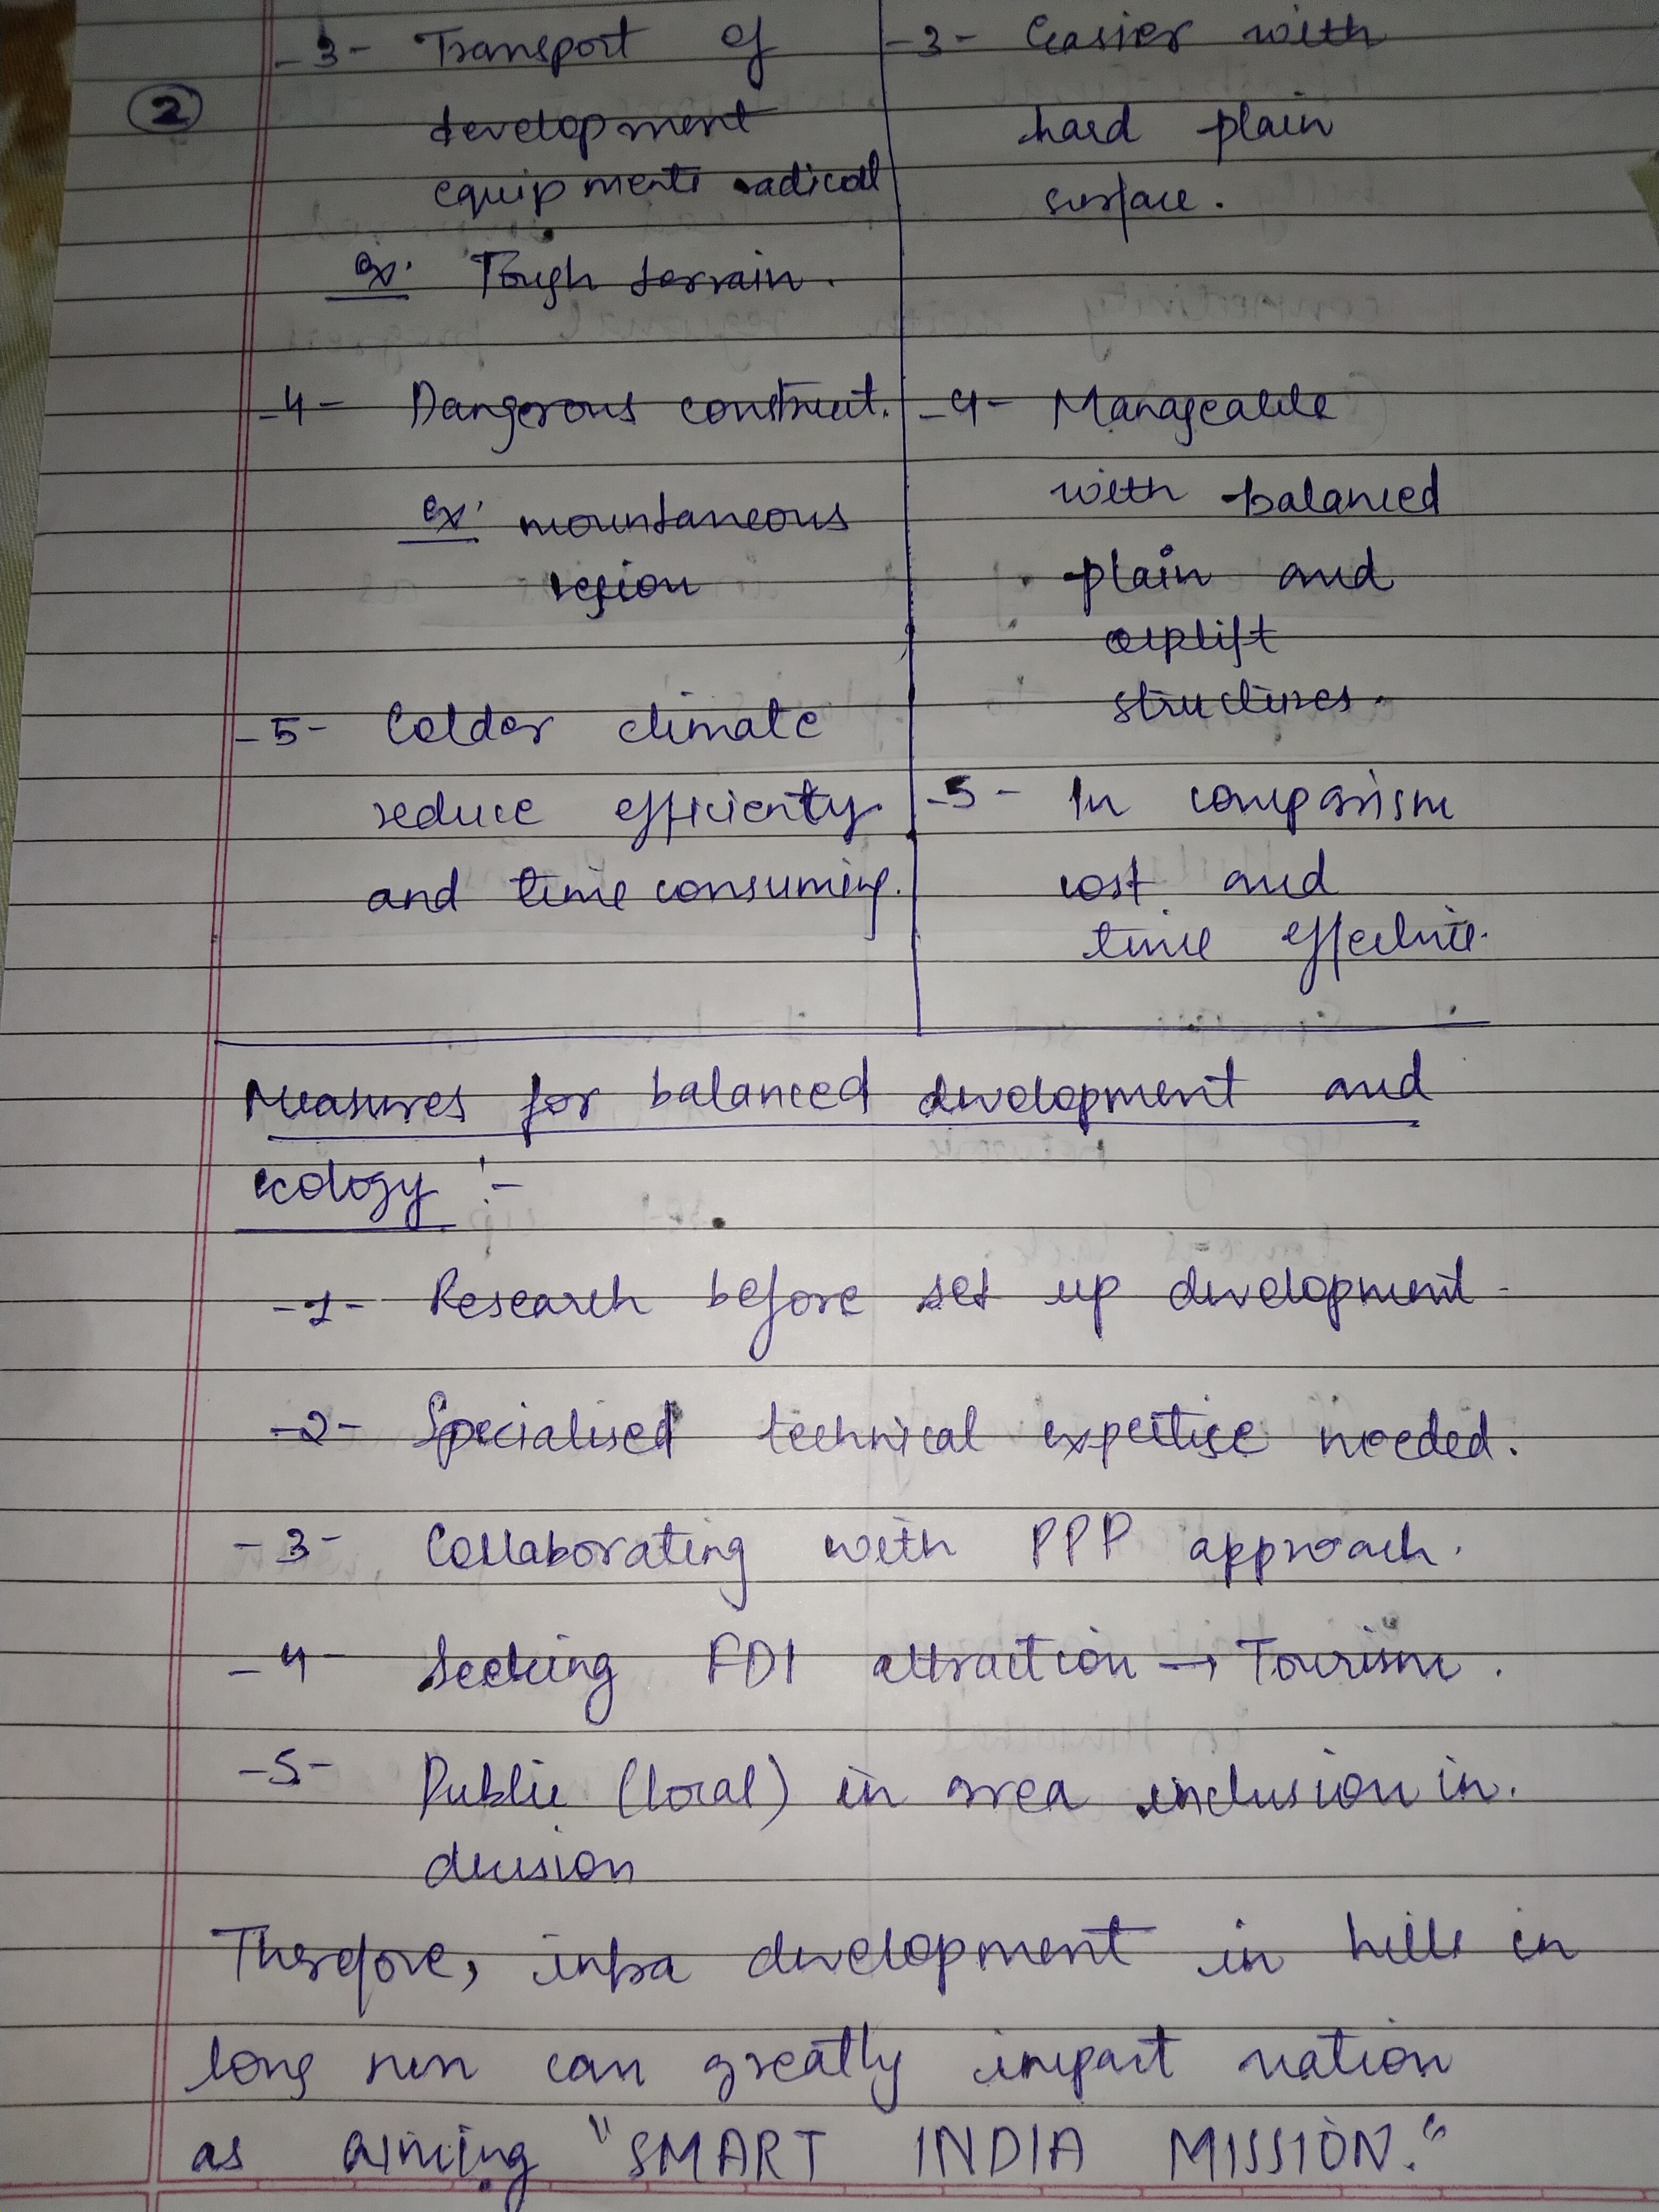 ②
-3- Transport of
development
equipments radical
ex. Tough terrain.
-4- Dangerous construct.
ex. mountaneous
region
-5- Colder climate
reduce efficienty
and time consuming.
-3- Easier with
hard plain
surface.
-4- Manageable
with balanced
plain and
uplift
structures.
-5- In comparism
cost and
time effective.
Measures for balanced development and
ecology :-
-1- Research before set up development.
-2- Specialised technical expertise needed.
-3- Collaborating with PPP approach.
-4- Seeking FDI attraction → Tourism.
-5- Public (local) in area inclusion in.
decision
Therefore, infra development in hills in
long run can greatly impact nation
as aiming "SMART INDIA MISSION."